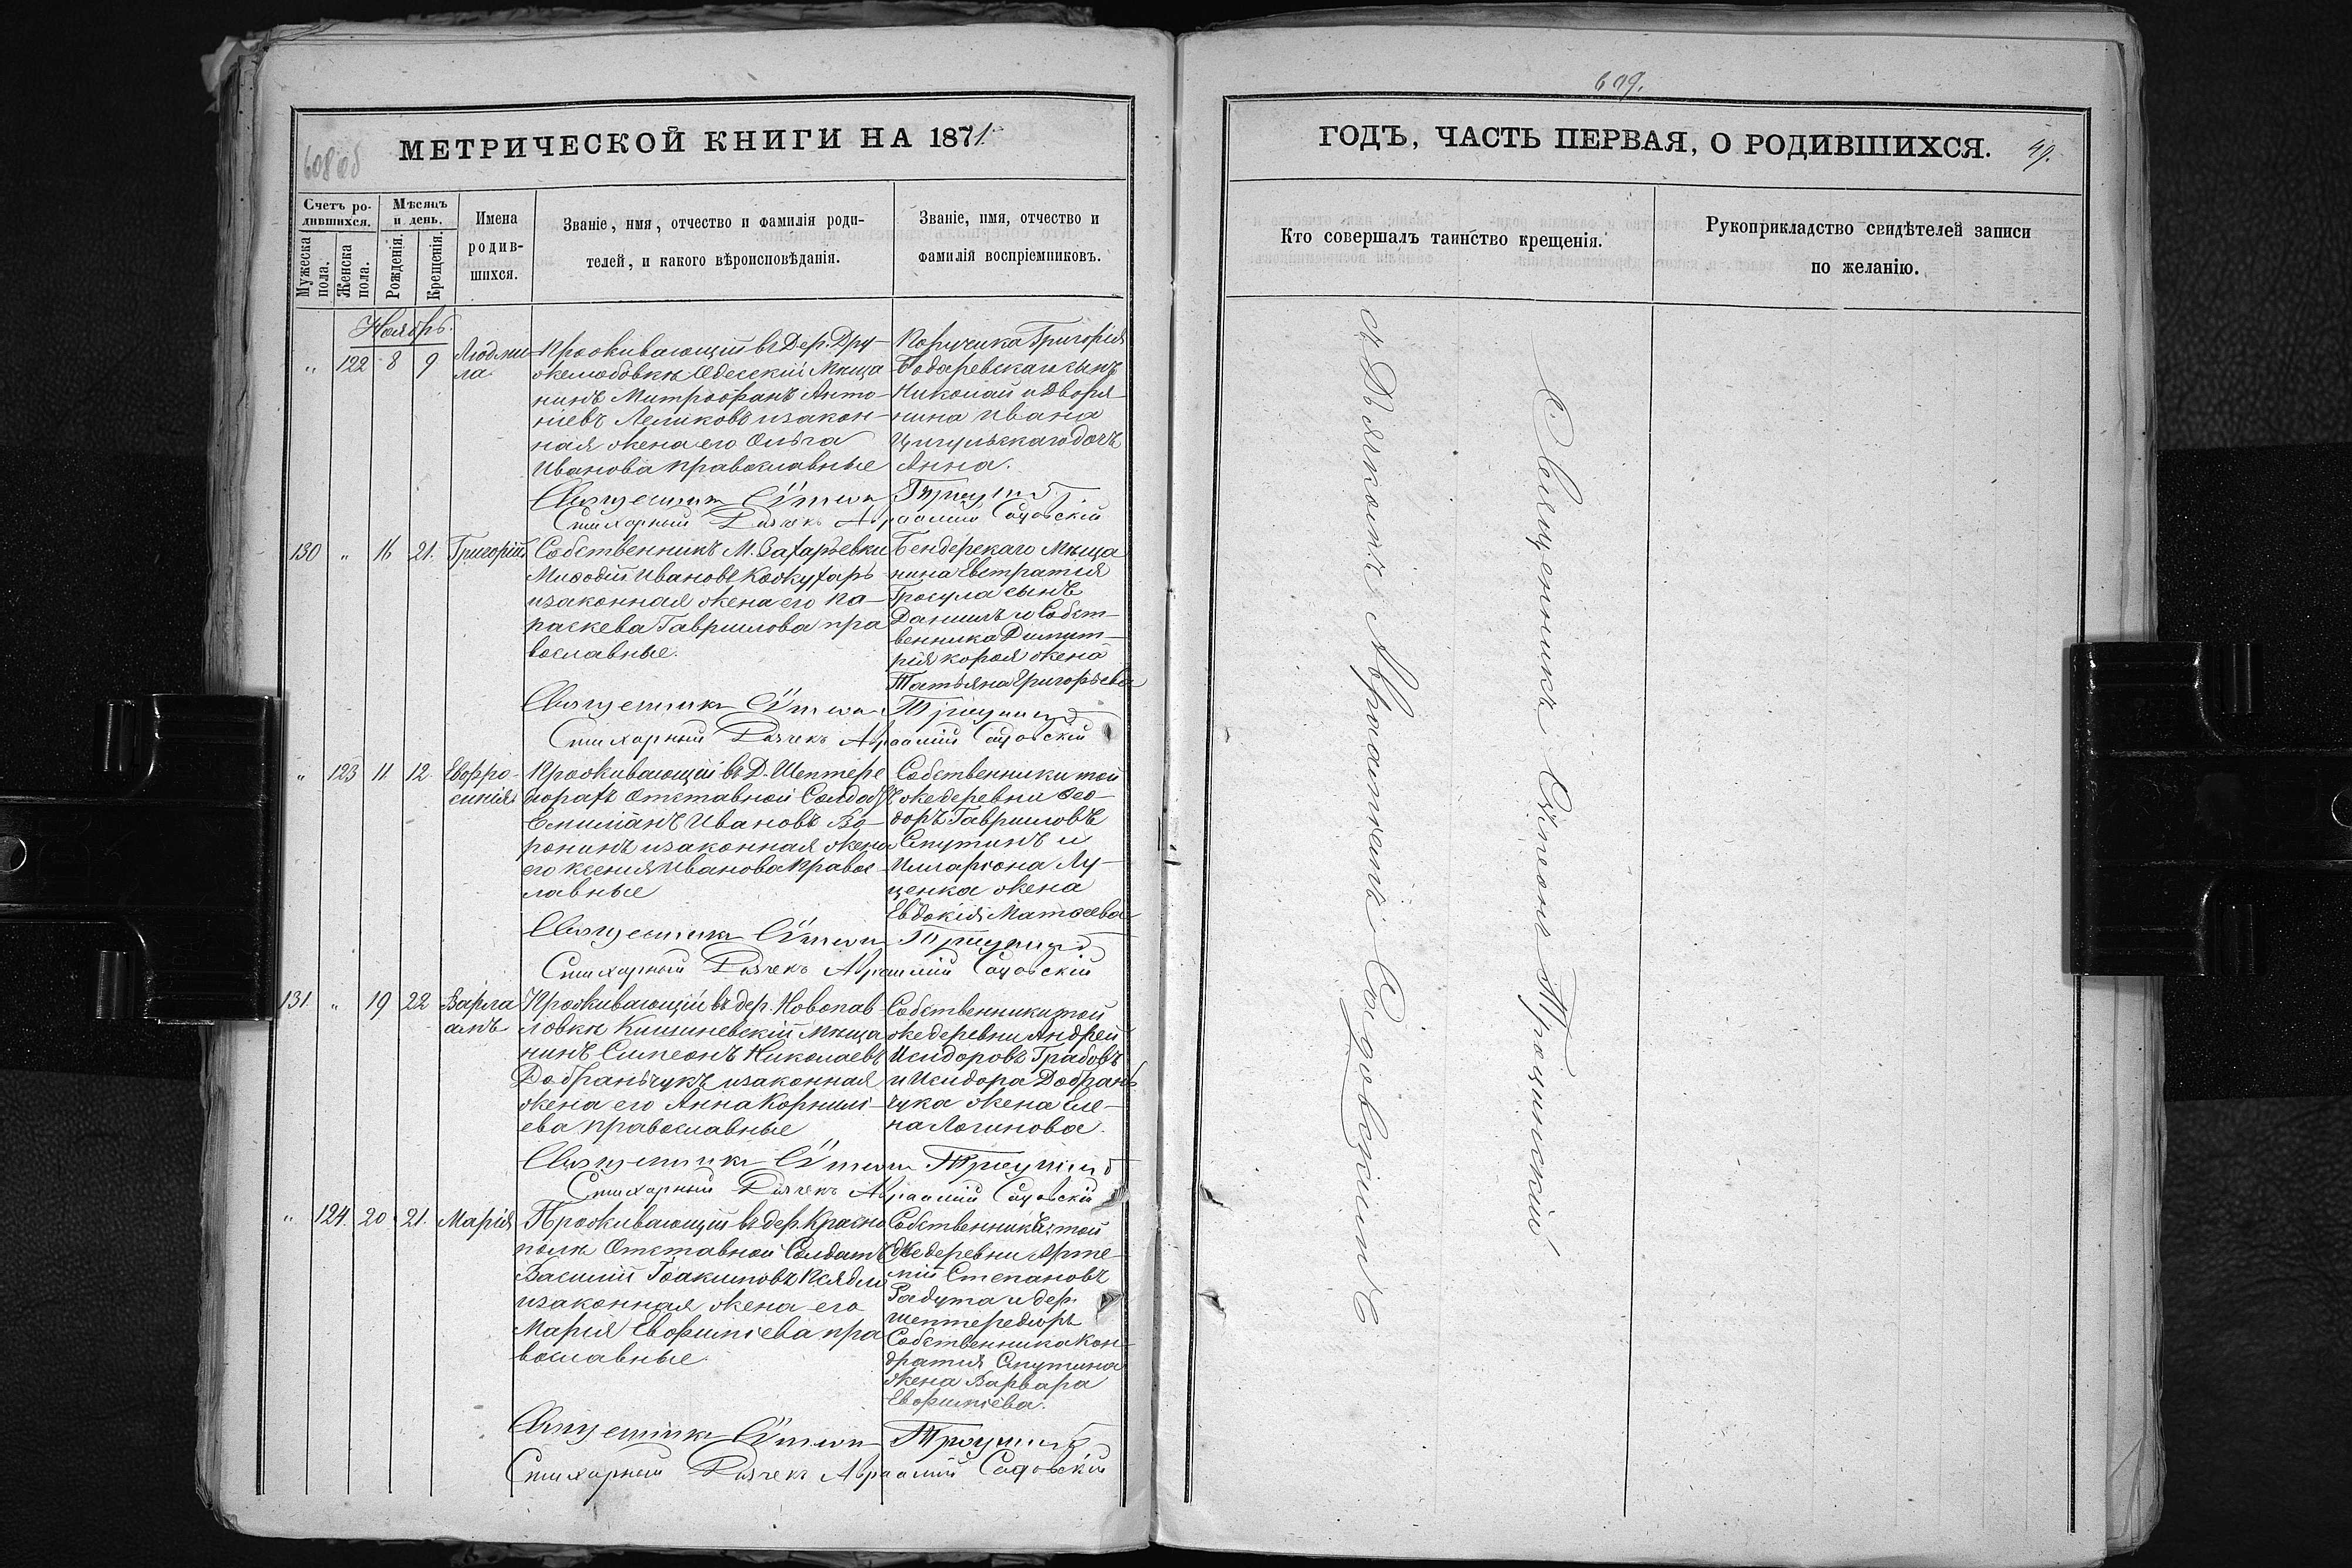 608 об
МЕТРИЧЕСКОЙ КНИГИ НА 1871.
Счетъ родившихся.
Мужеска пола.
Женска пола.
Мѣсяцъ и день.
Рожденія.
Крещенія.
Имена родившихся.
Званіе, имя, отчество и фамилія роди-
телей, и какого вѣроисповѣданія.
Званіе, имя, отчество и
фамилія воспріемниковъ.
Ноябрь.
„ 122 8 9 Людми-
ла
Проживающій въ Дер. Дру-
желюбовкѣ Одесскій Мѣща
нинъ Митрофанъ Анто-
ніевъ Леликовъ и закон-
ная жена его Ольга
Иванова православные
Поручика Григорія
Бодаревскаго сынъ
Николай и Дворя-
нина Ивана
Цигульскаго дочь
Анна.
Священникъ Сѵмеон Троицкій
Стихарный Дьячекъ Авраамій Садовскій
130 „ 16 21. Григорій
Собственникъ М. Захарьевки
Мифодій Ивановъ Кожухарь
и законная жена его Па-
раскева Гаврилова пра
вославные.
Бендерскаго Мѣща
нина Евстратія
Гросула сынъ
Даниилъ и Собст-
венника Димит-
рія короя жена
Татьяна Григорьева
Священникъ Сѵмеон Троицкій
Стихарный Дьячекъ Авраамій Садовскій
„ 123 11 12. Евфро-
синія
Проживающій въ Д. Шептере
Отставной Солдатъ
Емиліанъ Ивановъ Во-
ронинъ и законная жена
его Ксенія Иванова Правос-
лавные
Собственники той
же деревни Фео-
доръ Гавриловъ
Спутинъ и
Илларіона Лу-
ценка жена
Евдокія Матфеева
Священникъ Сѵмеон Троицкій
Стихарный Дьячекъ Авраамій Садовскій
131. „ 19 22 Варла
амъ
Проживающій въ дер. Новопав
ловкѣ Кишиневскій Мѣща
нинъ Симеонъ Николаевъ
Добраньчукъ и законная
жена его Анна Корнилі-
ева православные
Собственники той
же деревни Андрей
Исидоровъ Грабовъ
и Исидора Добрань
чука жена Еле-
на Логинова.
Священникъ Сѵмеон Троицкій
Стихарный Дьячекъ Авраамій Садовскій
„ 124. 20 21. Марія
Проживающій въ дер. Красно
полѣ Отставной Солдатъ
Василій Іоакимовъ
и законная жена его
Марія Евфиміева пра
вославные.
Собственникъ той
же деревни Арте-
мій Степановъ
Радута и дер.
Собственника Кон-
дратія Спутина
жена Варвара
Евфиміева.
Священникъ Сѵмеон Троицкій
Стихарный Дьячекъ Авраамій Садовскій
609.
ГОДЪ, ЧАСТЬ ПЕРВАЯ, О РОДИВШИХСЯ. 49.
Кто совершалъ таинство крещенія.
Рукоприкладство свидѣтелей записи
по желанію.
Священникъ Сѵмеонъ Троицкій
съ Дьячкомъ Авраамомъ Садовскимъ